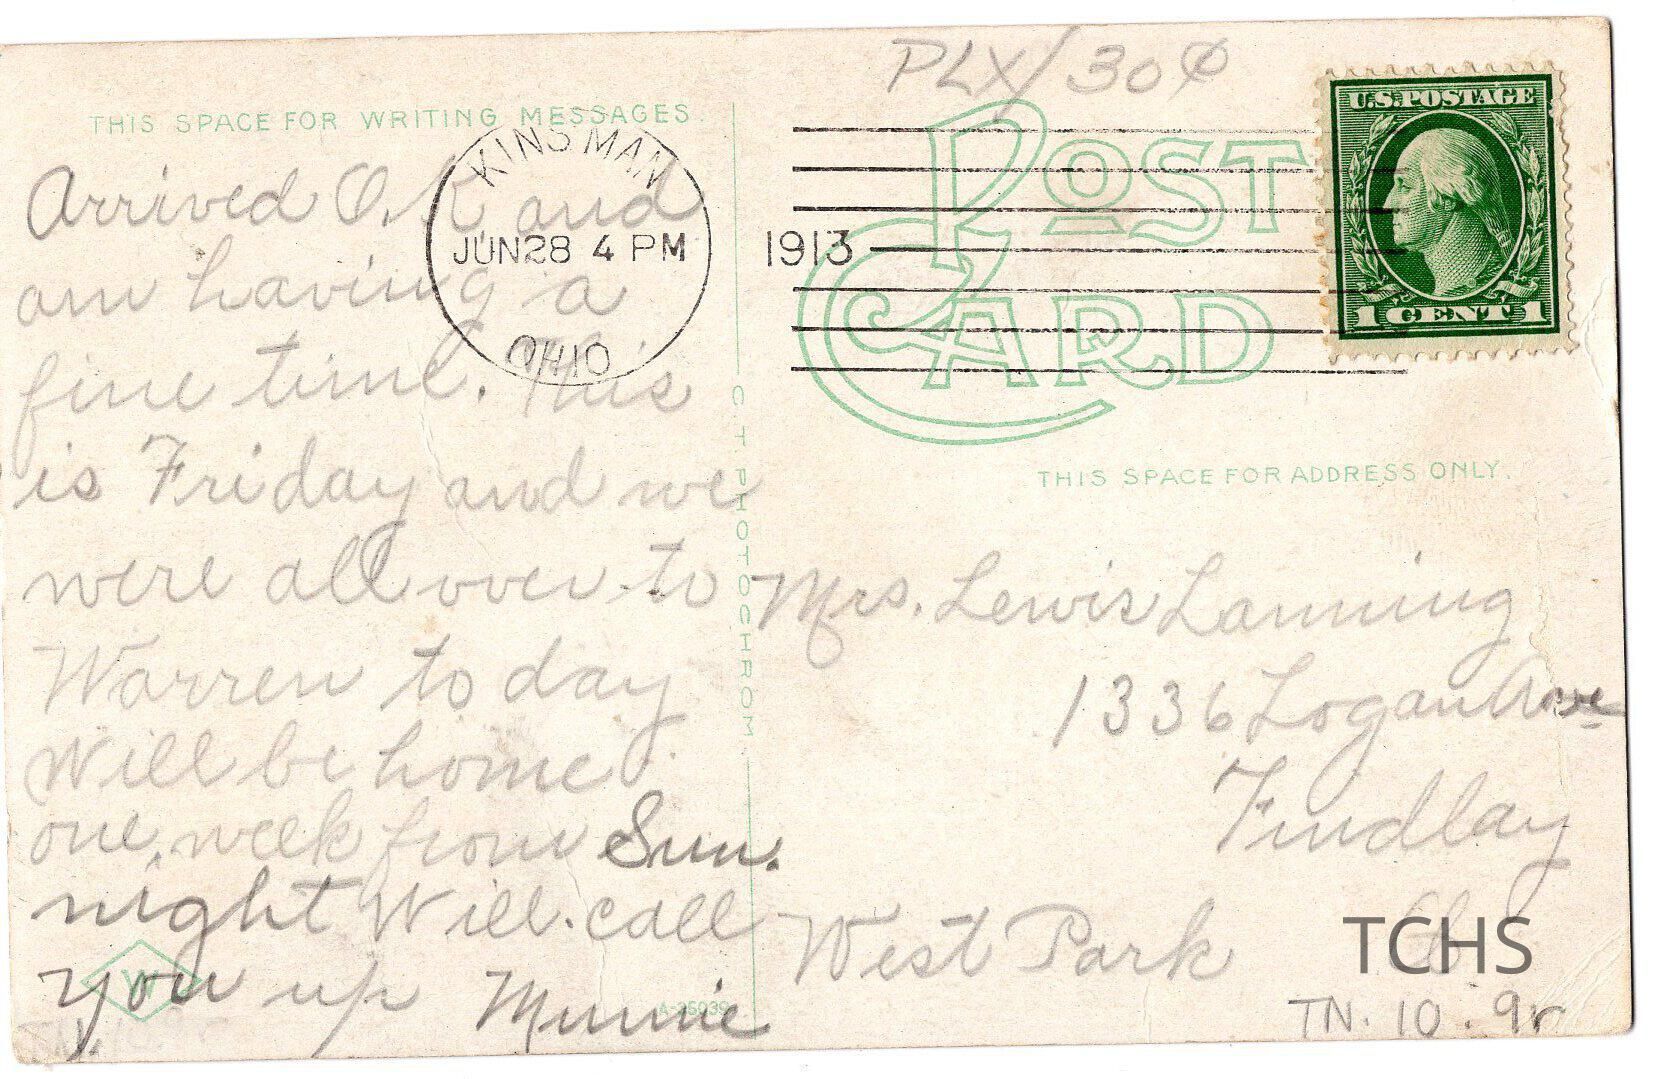 PLX/30¢
THIS SPACE FOR WRITING MESSAGES.
POST CARD
U.S. POSTAGE
1 CENT 1
KINSMAN
JUN 28 4 PM
1913
OHIO
THIS SPACE FOR ADDRESS ONLY.
C. T. PHOTOCHROM
Arrived O.K and
am having a
fine time. This
is Friday and we
were all over to
Warren to day
Will be home
one week from Sun.
night Will call
you up Minnie
W
A-25039
Mrs. Lewis Lanning
1336 Logan Ave
Findlay
West Park O
TCHS
TN. 10. 9r